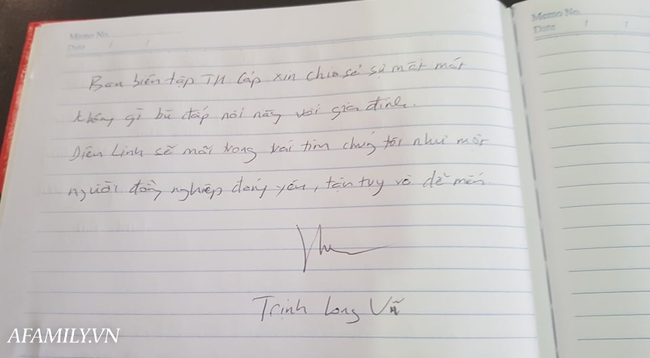 Memo No.
Date / /
Ban biên tập TH Cáp xin chia sẻ sự mất mát
không gì bù đắp nổi này với gia đình.
Diệu Linh sẽ mãi trong trái tim chúng tôi như một
người đồng nghiệp đáng yêu, tận tụy và dễ mến
Trịnh Long Vũ
Memo No.
Date / /
AFAMILY.VN